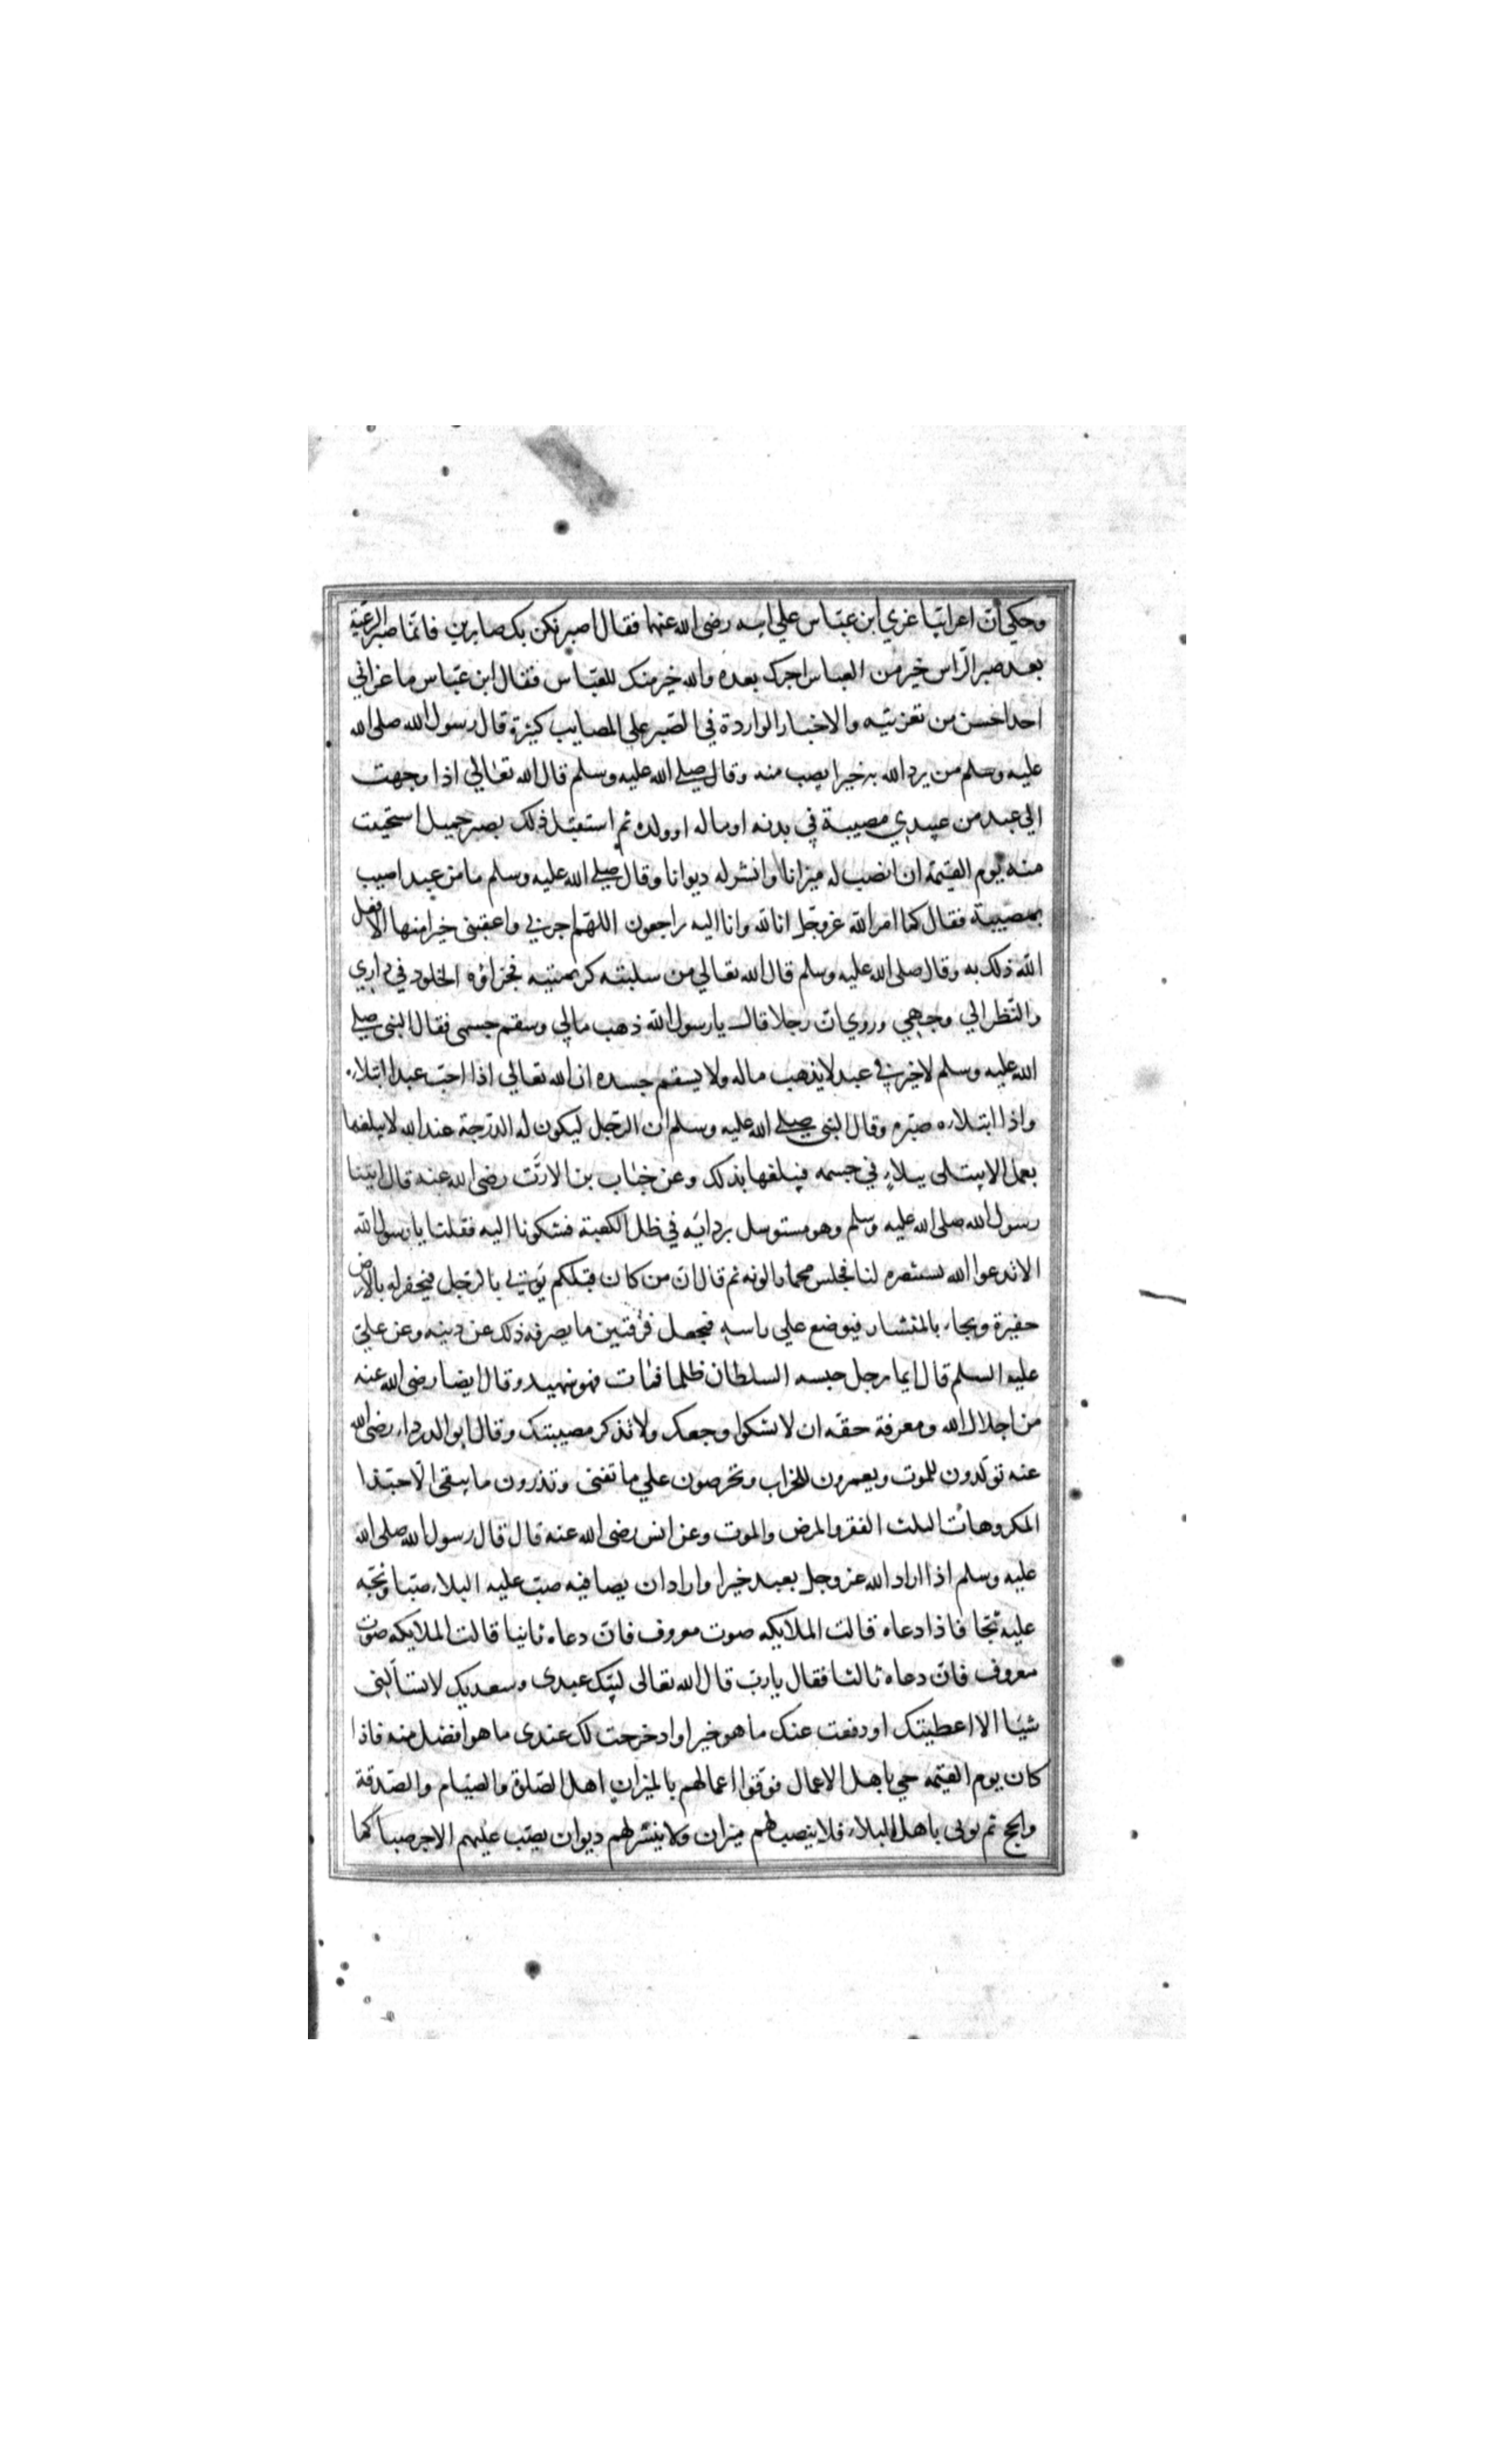 وحكي ان اعرابيا عزي ابن عباس علي ابيه رضى الله عنهما فقال اصبر نكن بك صابرين فانما صبر الرعية
بعد صبر الراس خير من العباس اجرك بعده والله خير منك للعباس فقال ابن عباس ما عزاني
احد احسن من تعزيته والاخبار الواردة في الصبر علي المصايب كثيرة قال رسول الله صلى الله
عليه وسلم من يرد الله به خيرا يصب منه وقال صلى الله عليه وسلم قال الله تعالي اذا وجهت
الي عبد من عبيدي مصيبة في بدنه او ماله او ولده ثم استقبل ذلك بصبر جميل استحييت
منه يوم القيمة ان انصب له ميزانا او انشر له ديوانا وقال صلى الله عليه وسلم ما من عبد اصيب
بمصيبة فقال كما امر الله عز وجل انا لله وانا اليه راجعون اللهم اجرني واعقبنى خيرا منها الا فعل
الله ذلك به وقال صلى الله عليه وسلم قال الله تعالي من سلبته كريمتيه فجزاؤه الخلود في داري
والنظر الي وجهي وروي ان رجلا قال يا رسول الله ذهب مالي وسقم جسمى فقال النبى صلى
الله عليه وسلم لا خير في عبد لا يذهب ماله ولا يسقم جسده ان الله تعالي اذا احب عبدا ابتلاءه
واذا ابتلاءه صبره وقال النبى صلى الله عليه وسلم ان الرجل ليكون له الدرجة عند الله لا يبلغها
بعمل الا يبتلى ببلاء في جسمه فيبلغها بذلك وعن خباب بن الارت رضى الله عنه قال اتينا
رسول الله صلى الله عليه وسلم وهو متوسل بردائه في ظل الكعبة فشكونا اليه فقلنا يا رسول الله
الا تدعوا الله لنا فجلس محمارا لونه ثم قال ان من كان قبلكم يؤتي بالرجل فيحفر له بالارض
حفيرة ويجاء بالمنشار فيوضع علي راسه فيجعل فرقتين ما يصرفه ذلك عن دينه وعن علي
عليه السلم قال ايما رجل حبسه السلطان ظلما فمات فهو شهيد وقال ايضا رضى الله عنه
من اجلال الله ومعرفة حقه ان لا تشكوا وجعك ولا تذكر مصيبتك وقال ابو الدرداء رضى الله
عنه تولدون للموت ويعمرون للخراب وتحرصون علي ما تفنى وتذرون ما يبقى الا حبذا
المكروهات الثلث الفقر والمرض والموت وعن انس رضى الله عنه قال قال رسول الله صلى الله
عليه وسلم اذا اراد الله عز وجل بعبد خيرا واراد ان يصافيه صب عليه البلاء صبا وثجه
عليه ثجا فاذا دعاه قالت الملايكه صوت معروف فان دعاه ثانيا قالت الملايكه صوت
معروف فان دعاه ثالثا فقال يا رب قال الله تعالى لبيك عبدى وسعديك لا تسألنى
شيئا الا اعطيتك او دفعت عنك ما هو خير او ادخرت لك عندى ما هو افضل منه فاذا
كان يوم القيمه جي باهل الاعمال فوفوا اعمالهم بالميزان اهل الصلوة والصيام والصدقة
والحج ثم يوتى باهل البلاء فلا ينصب لهم ميزان ولا ينشر لهم ديوان يصب عليهم الاجر صبا كما